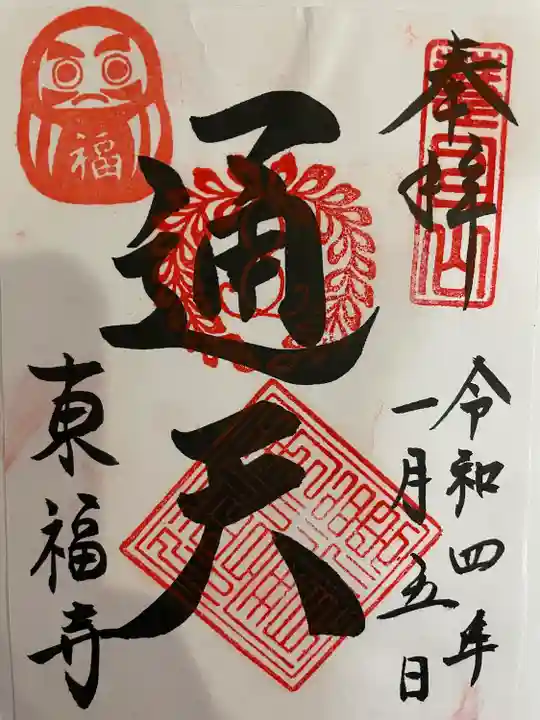 奉拝
令和四年
一月五日
通天
福
東福寺